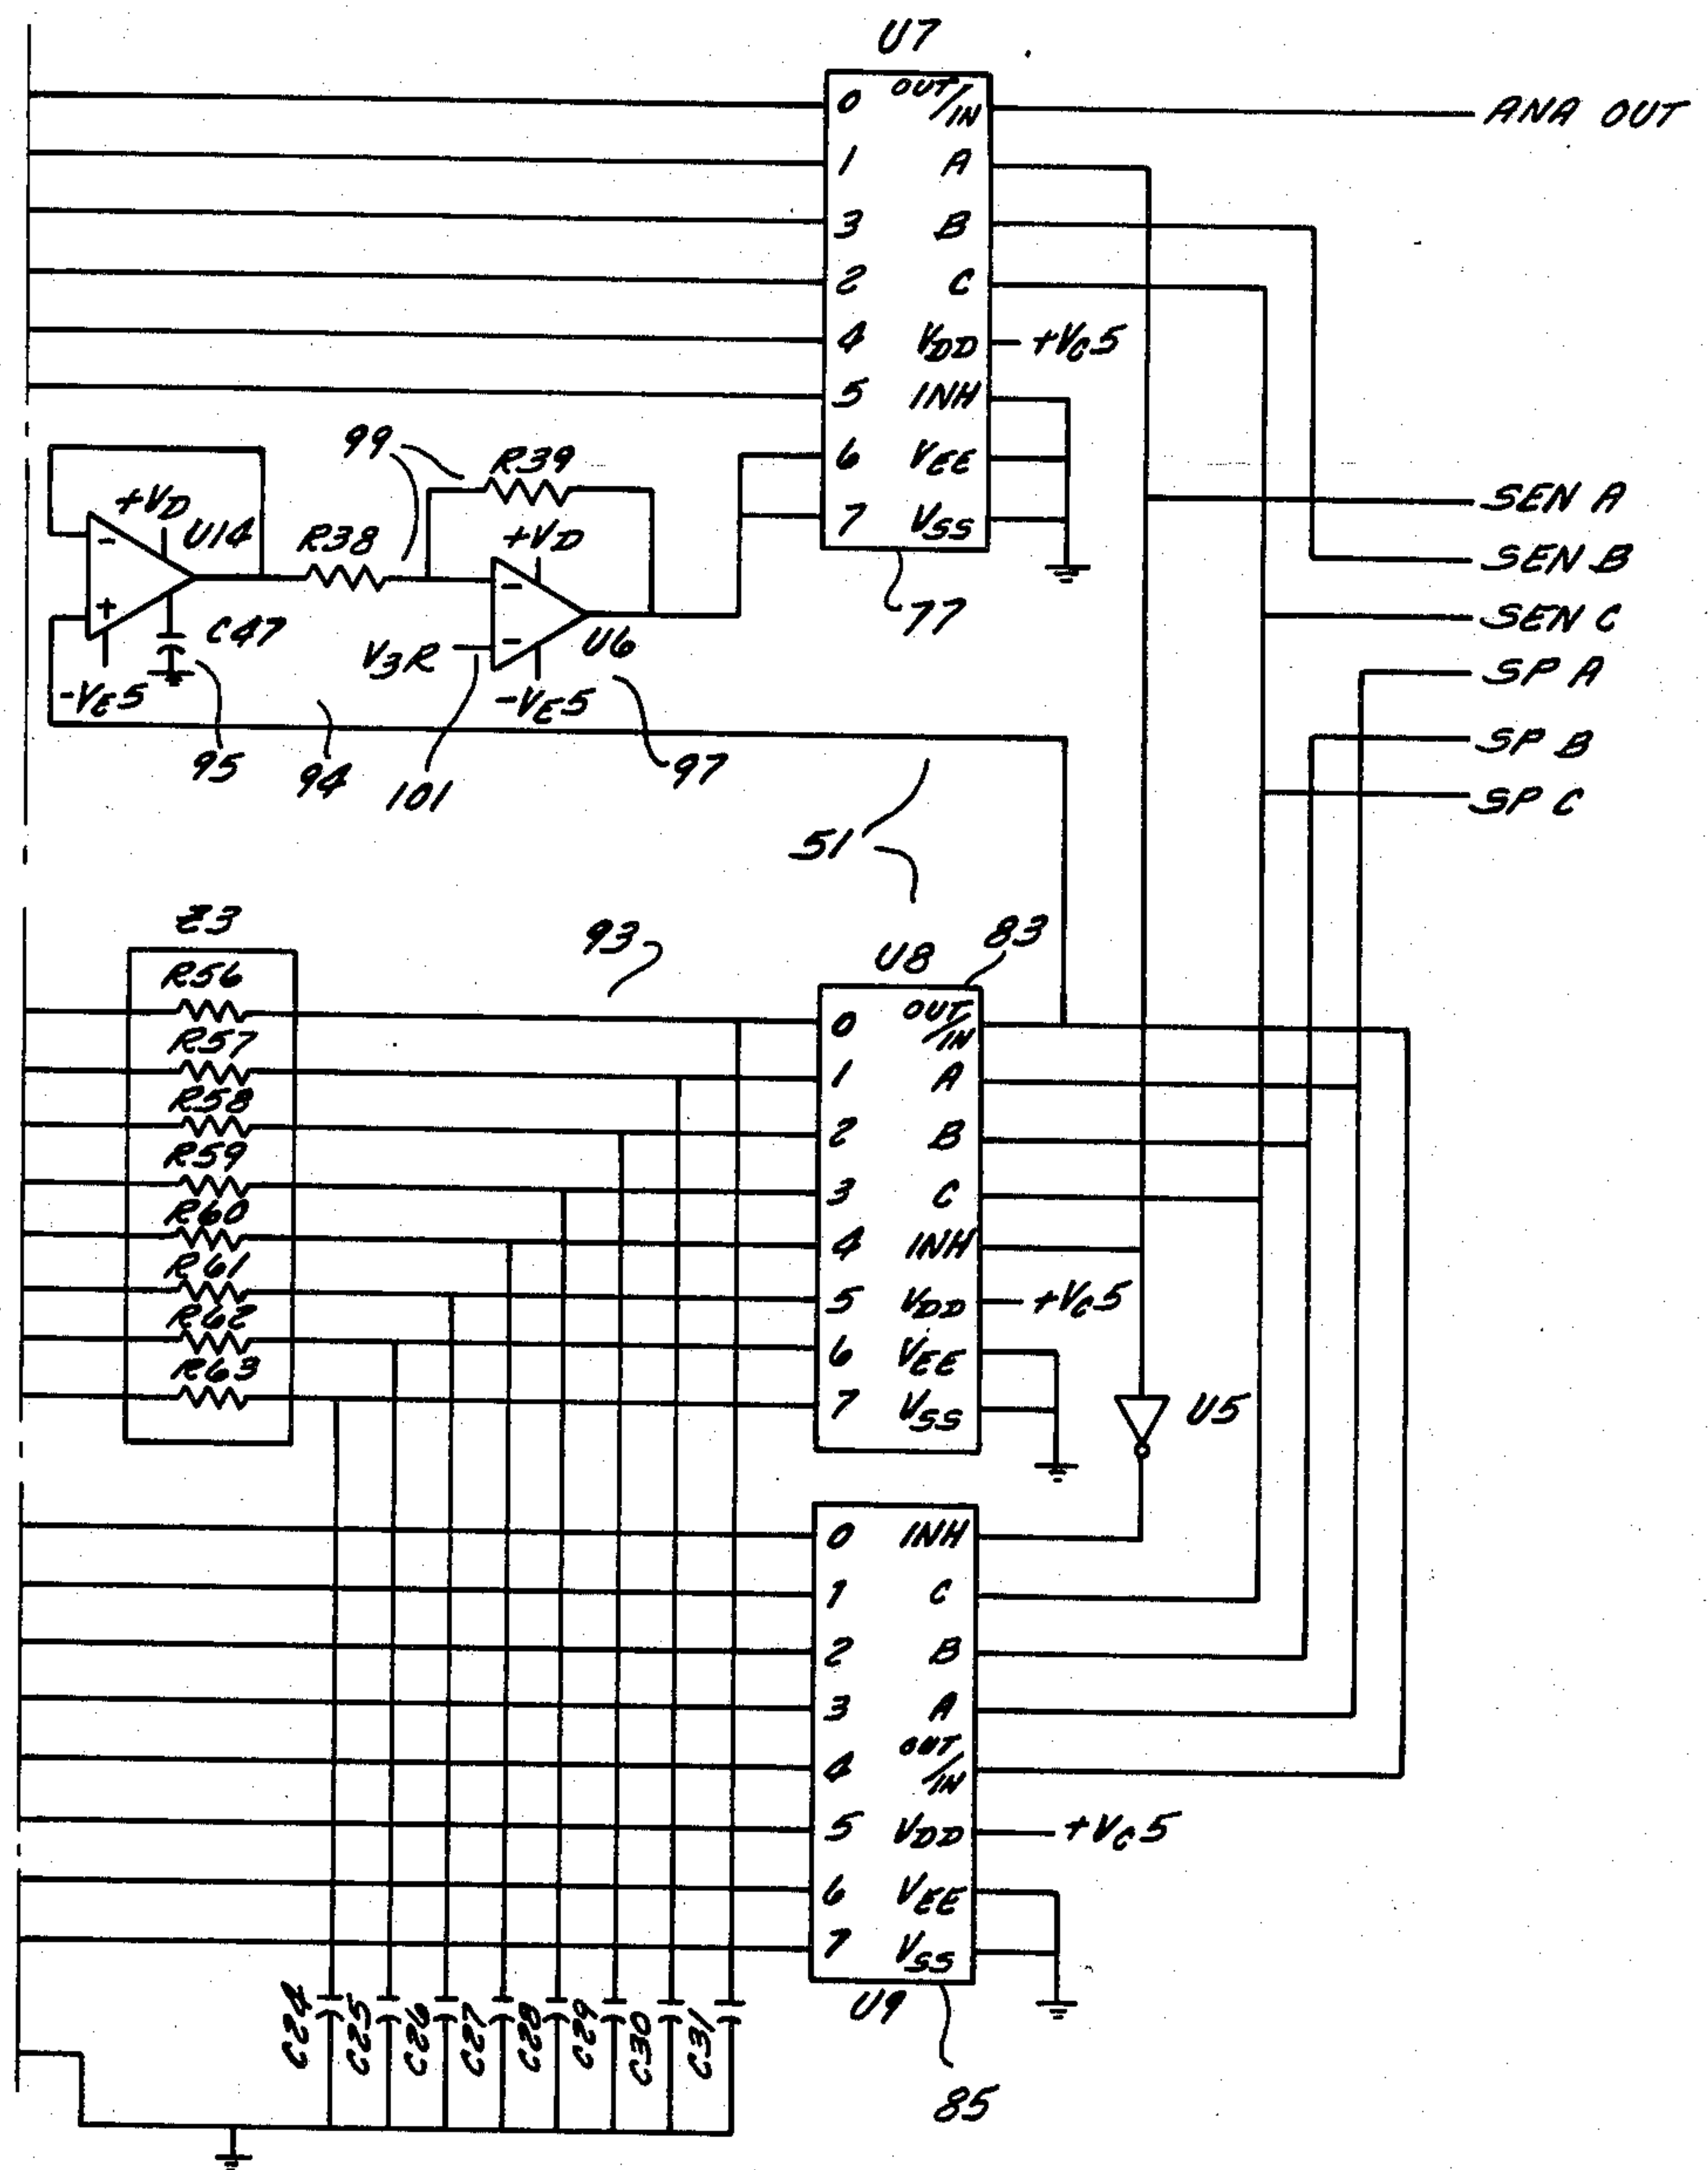 U7
0 OUT/IN
1 A
3 B
2 C
4 VDD +VC5
5 INH
6 VEE
7 VSS
77
ANA OUT
SEN A
SEN B
SEN C
SP A
SP B
SP C
99
R39
+VD
U14
R38
+VD
-
+
C47
-
-
V3R
U6
-VE5
-VE5
95
94
101
97
51
Z3
R56
R57
R58
R59
R60
R61
R62
R63
93
U8
83
0 OUT/IN
1 A
2 B
3 C
4 INH
5 VDD +VC5
6 VEE
7 VSS
U5
0 INH
1 C
2 B
3 A
4 OUT/IN
5 VDD +VC5
6 VEE
7 VSS
U9
85
C24
C25
C26
C27
C28
C29
C30
C31